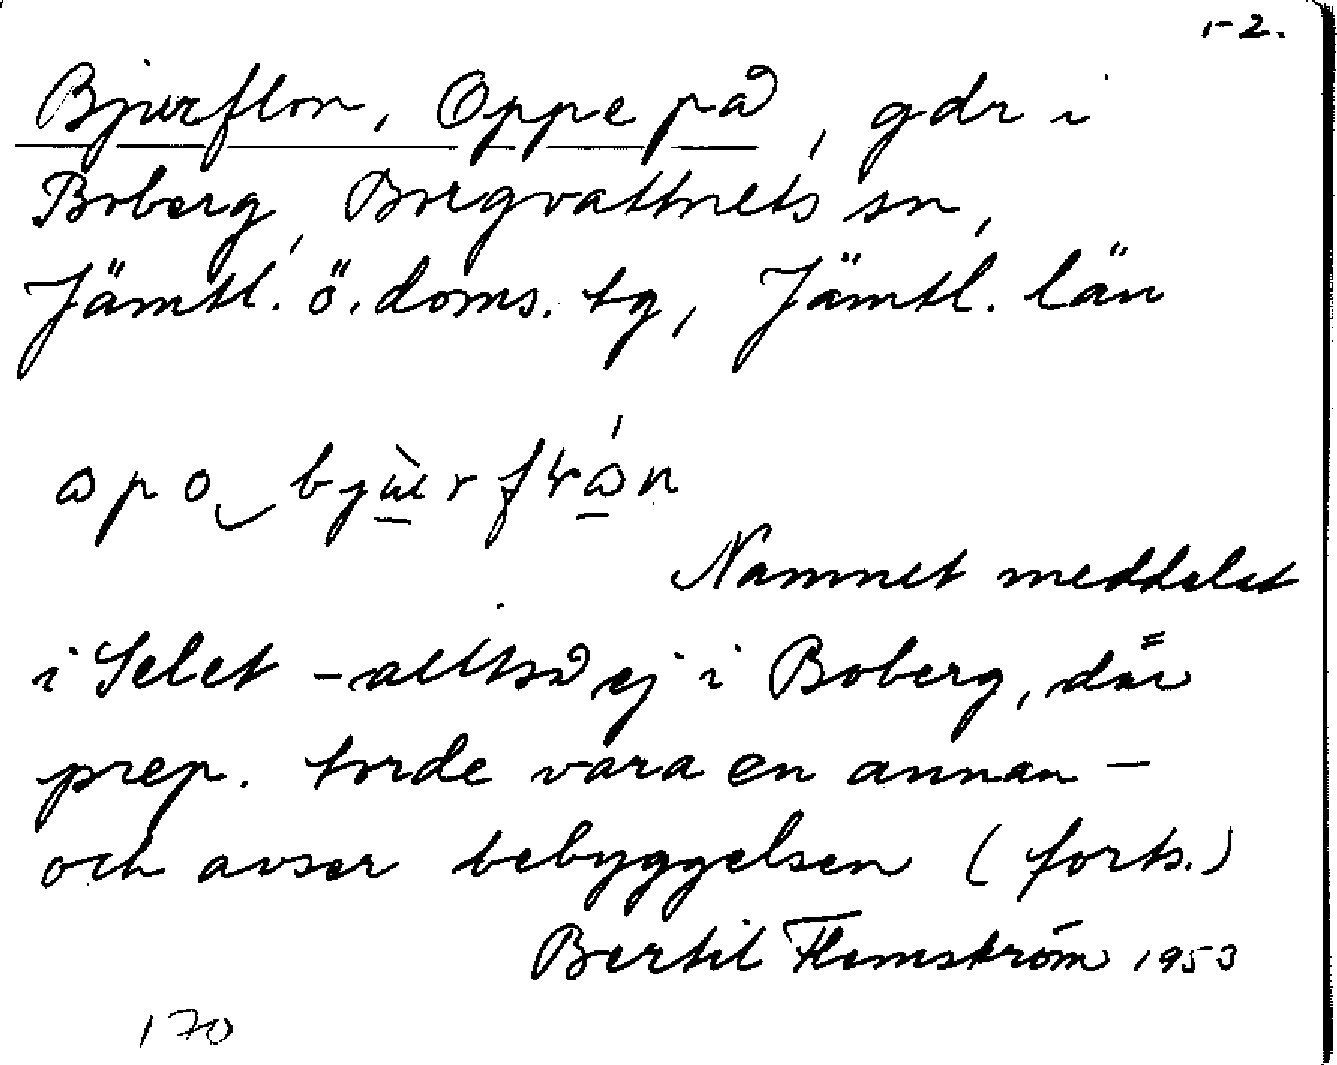 1-2.
Bjurflon, Oppe på, gdr i
Boberg, Borgvattnets sn,
Jämtl. ö. doms. tg, Jämtl. län
Namnet meddelat
i Selet - alltså ej i Boberg, där
prep. torde vara en annan -
och avser bebyggelsen (forts.)
Bertil Flemström 1953
170